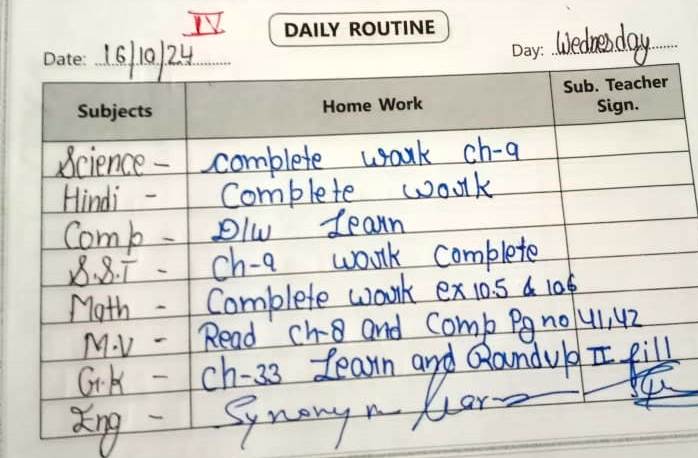 IV
DAILY ROUTINE
Date: 16/10/24 Day: Wednesday
Subjects Home Work Sub. Teacher Sign.
Science - complete work ch-9
Hindi - Complete work
Comp - D/W Learn
S.S.T - Ch-9 work complete
Math - Complete work ex 10.5 & 10.6
M.V - Read ch-8 and Comp Pg no 41,42
G.K - Ch-33 Learn and Roundup II fill
Eng - Synonym learn